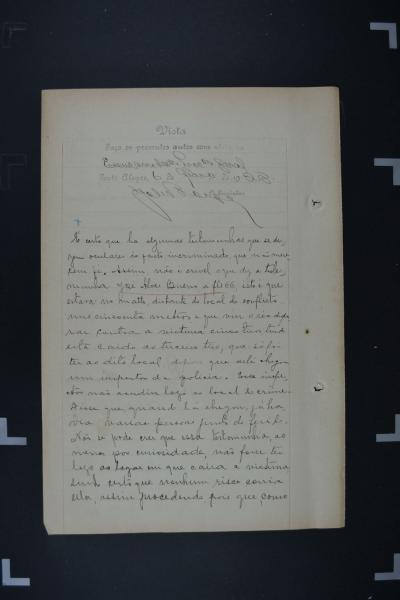 Vista
Faço os presentes autos com vista ao
Porto Alegre,
É certo que ha algumas testemunhas que se de-
ram oculares do facto incriminado, que não mere-
cem fé. Assim, não é crivel o que diz a teste-
munha José Alves Bueno a fls 66, isto é que
estava no matto distante do local do conflicto
uns cincoenta metros e que viu o réo dispa-
rar contra a victima cinco tiros, tendo
ella caido ao terceiro tiro, que só fo-
ra ao dito local depois que alli chegou
um inspector de policia. Esse inspe-
ctor não acudiu logo ao local do crime.
Disse que, quando lá chegou, já ha-
via varias pessoas junto do ferido.
Não se pode crer que essa testemunha, ao
menos por curiosidade, não fosse
logo ao logar em que caira a victima
sendo certo que nenhum risco corria
ella, assim procedendo pois que, como